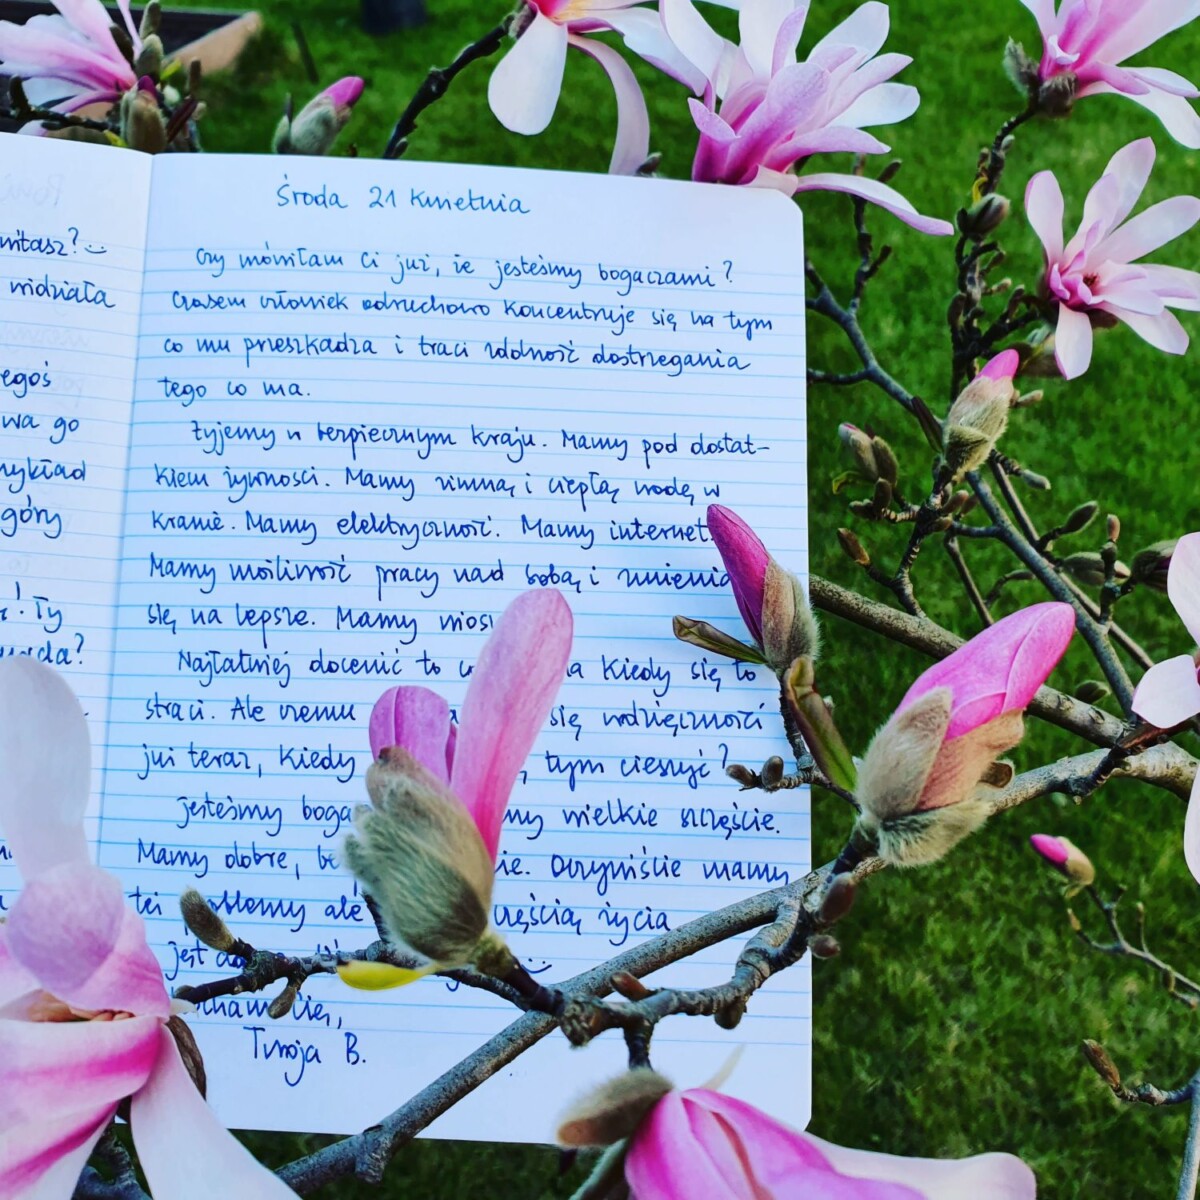 Środa 21 Kwietnia
Czy mówiłam Ci już, że jesteśmy bogaczami?
Czasem człowiek odruchowo koncentruje się na tym
co mu przeszkadza i traci zdolność dostrzegania
tego co ma.
Żyjemy w bezpiecznym kraju. Mamy pod dostat-
kiem żywności. Mamy zimną i ciepłą wodę w
kranie. Mamy elektryczność. Mamy internet.
Mamy możliwość pracy nad sobą i zmienia
się na lepsze. Mamy wios
Najłatwiej docenić to co ma kiedy się to
straci. Ale czemu się wdzięczności
już teraz, kiedy , tym cieszyć?
Jesteśmy boga my wielkie szczęście.
Mamy dobre, be ie. Oczywiście mamy
też oblemy ale częścią życia
jest
ocham Cię,
Twoja B.
witasz?
widziała
egoś
wa go
zykład
góry
! Ty
wda?